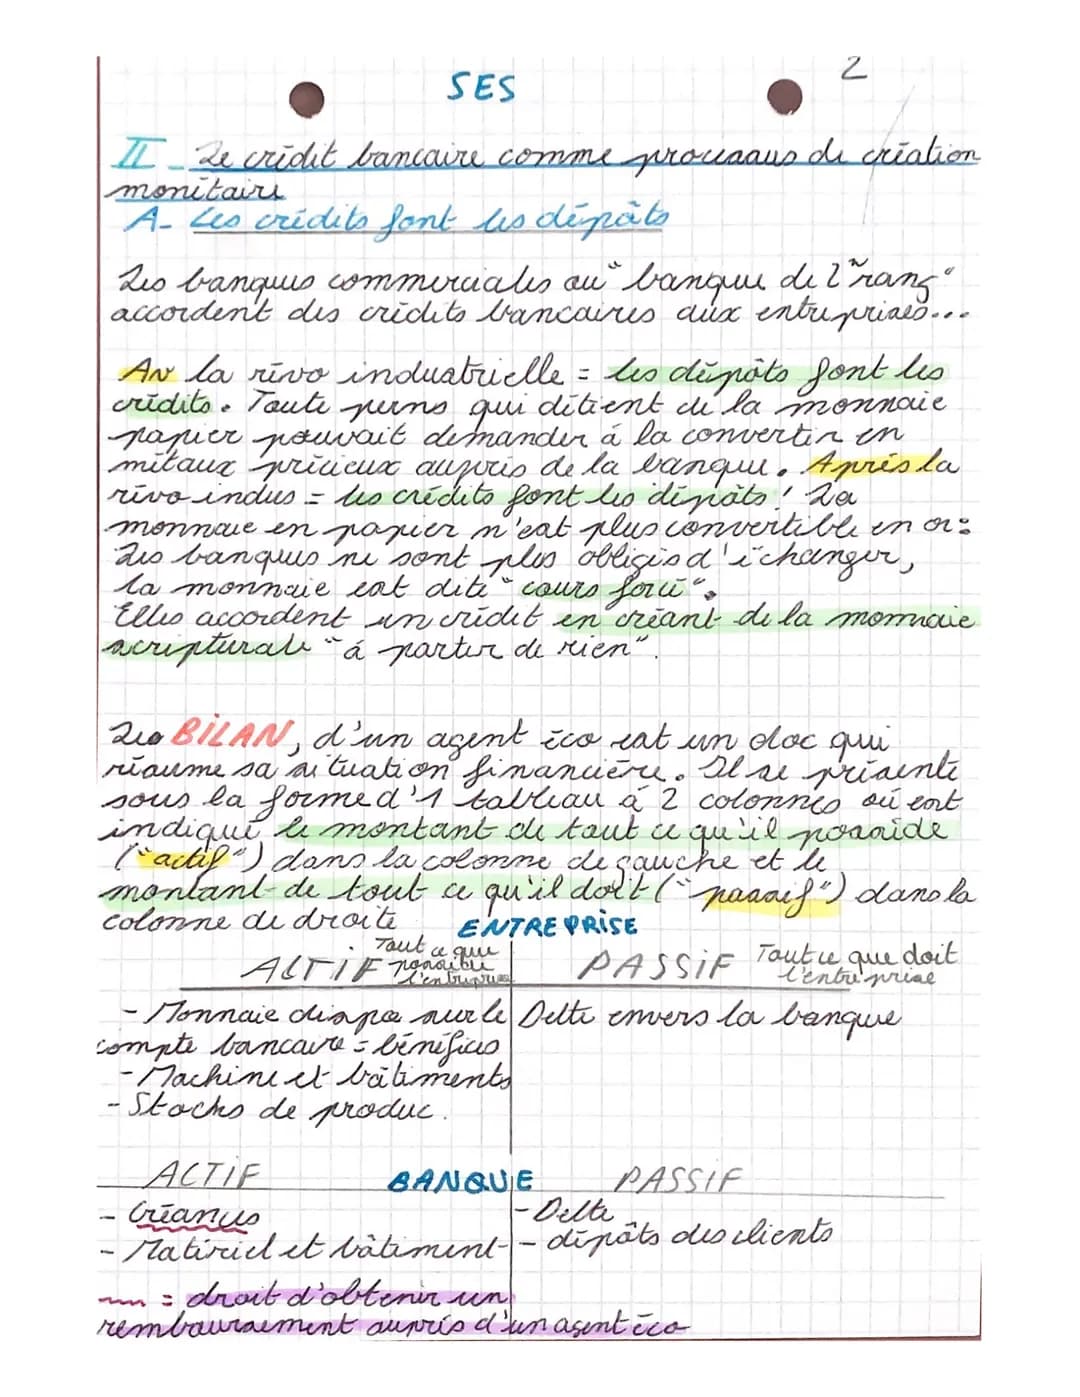 SES
2
II_ Le crédit bancaire comme processus de création
monétaire
A- Les crédits font les dépôts
Les banques commerciales ou "banque de 2nd rang"
accordent des crédits bancaires aux entreprises...
Av la révo industrielle = les dépôts font les
crédits. Toute perns qui détient de la monnaie
papier pouvait demander à la convertir en
métaux précieux auprès de la banque. Après la
révo indus = les crédits font les dépôts! La
monnaie en papier n'est plus convertible en or:
Les banques ne sont plus obligés d'échanger,
la monnaie est dite "cours forcé".
Elles accordent un crédit en créant de la monnaie
scripturale "à partir de rien".
Les BILAN, d'un agent éco est un doc qui
résume sa situation financière. Il se présente
sous la forme d'1 tableau à 2 colonnes où ent
indiqué le montant de tout ce qu'il possède
("actif") dans la colonne de gauche et le
montant de tout ce qu'il doit ("passif") dans la
colonne de droite
ENTREPRISE
ACTIF Tout ce que possède l'entreprise
PASSIF Tout ce que doit l'entreprise
- Monnaie dispo sur le compte bancaire = bénéfices
Dette envers la banque
- Machine et bâtiments
- Stocks de produc.
ACTIF BANQUE PASSIF
- Créances
- Dette
- Matériel et bâtiment
- dépôts des clients
= droit d'obtenir un
remboursement auprès d'un agent éco